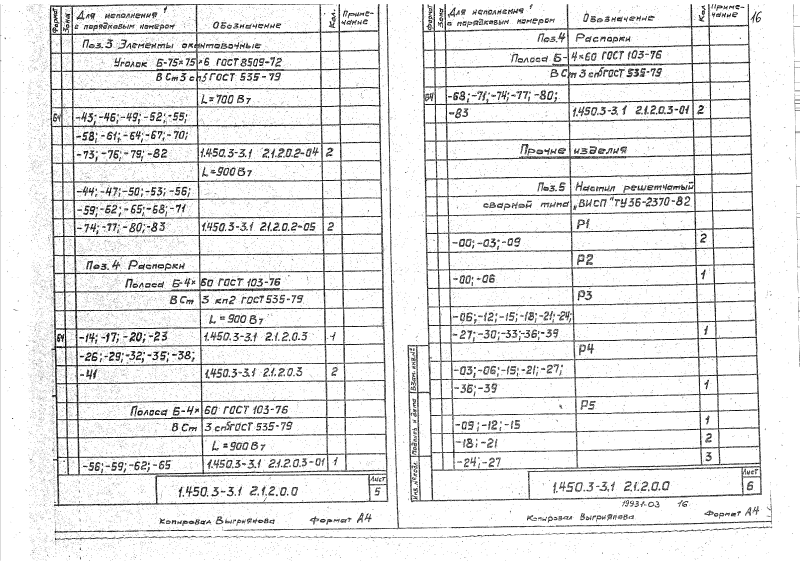 Формат Зона Для исполнения с порядковым номером Обозначение Кол. Примечание
Поз. 3 Элементы окантовочные
Уголок Б-75×75×6 ГОСТ 8509-72
В Ст 3 сп5 ГОСТ 535-79
L=700 Вт
БЧ -43; -46; -49; -52; -55;
-58; -61; -64; -67; -70;
-73; -76; -79; -82 1.450.3-3.1 2.1.2.0.2-04 2
L=900 Вт
-44; -47; -50; -53; -56;
-59; -62; -65; -68; -71
-74; -77; -80; -83 1.450.3-3.1 2.1.2.0.2-05 2
Поз. 4 Распорки
Полоса Б-4× 60 ГОСТ 103-76
В Ст 3 кп2 ГОСТ 535-79
L=900 Вт
БЧ -14; -17; -20; -23 1.450.3-3.1 2.1.2.0.3 1
-26; -29; -32; -35; -38;
-41 1.450.3-3.1 2.1.2.0.3 2
Полоса Б-4× 60 ГОСТ 103-76
В Ст 3 сп5 ГОСТ 535-79
L=900 Вт
-56; -59; -62; -65 1.450.3-3.1 2.1.2.0.3-01 1
1.450.3-3.1 2.1.2.0.0
Лист
5
Копировал Выгриянова Формат А4
16
Формат Зона Для исполнения с порядковым номером Обозначение Кол. Примечание
Поз. 4 Распорки
Полоса Б-4×60 ГОСТ 103-76
В Ст 3 сп5 ГОСТ 535-79
БЧ -68; -71; -74; -77; -80;
-83 1.450.3-3.1 2.1.2.0.3-01 2
Прочие изделия
Поз. 5 Настил решетчатый
сварной типа „ВИСП" ТУ36-2370-82
Р1
-00; -03; -09 2
Р2
-00; -06 1
Р3
-06; -12; -15; -18; -21; -24;
-27; -30; -33; -36; -39 1
Р4
-03; -06; -15; -21; -27;
-36; -39 1
Р5
-09; -12; -15 1
-18; -21 2
-24; -27 3
Инв. № подл. Подпись и дата Взам. инв. №
1.450.3-3.1 2.1.2.0.0
Лист
6
19931-03 16
Копировал Выгриянова Формат А4